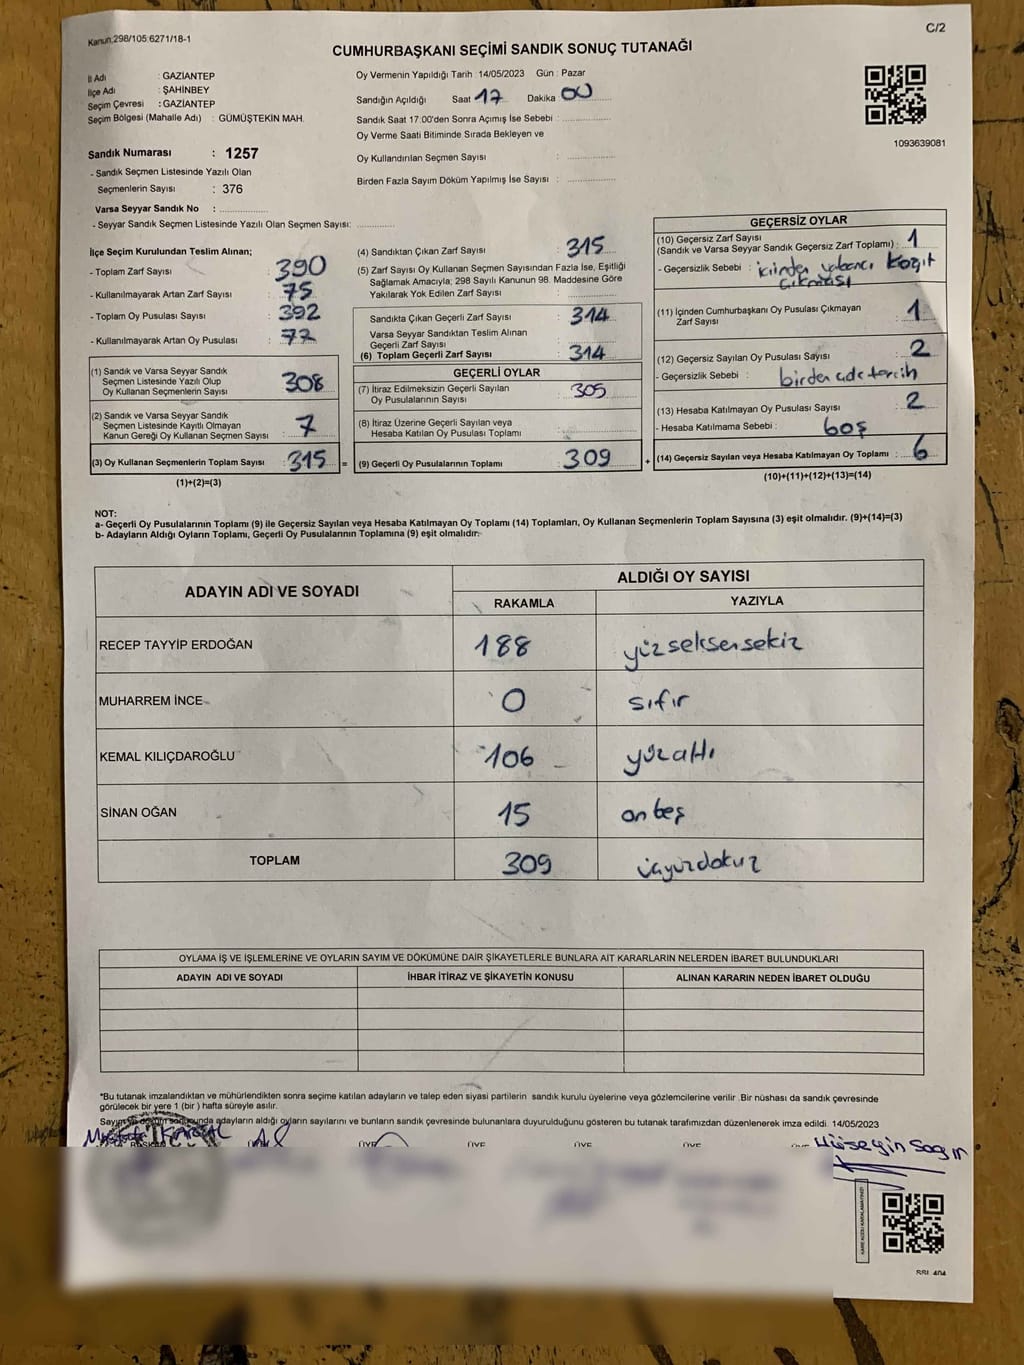 Kanun:298/105:6271/18-1
C/2
CUMHURBAŞKANI SEÇİMİ SANDIK SONUÇ TUTANAĞI
İl Adı : GAZİANTEP
İlçe Adı : ŞAHİNBEY
Seçim Çevresi : GAZİANTEP
Seçim Bölgesi (Mahalle Adı) : GÜMÜŞTEKİN MAH.
Sandık Numarası : 1257
- Sandık Seçmen Listesinde Yazılı Olan
Seçmenlerin Sayısı : 376
Varsa Seyyar Sandık No :
- Seyyar Sandık Seçmen Listesinde Yazılı Olan Seçmen Sayısı:
Oy Vermenin Yapıldığı Tarih : 14/05/2023 Gün : Pazar
Sandığın Açıldığı Saat 17 Dakika 00
Sandık Saat 17:00'den Sonra Açımış İse Sebebi :
Oy Verme Saati Bitiminde Sırada Bekleyen ve
Oy Kullandırılan Seçmen Sayısı :
Birden Fazla Sayım Döküm Yapılmış İse Sayısı :
1093639081
İlçe Seçim Kurulundan Teslim Alınan;
- Toplam Zarf Sayısı : 390
- Kullanılmayarak Artan Zarf Sayısı : 75
- Toplam Oy Pusulası Sayısı : 392
- Kullanılmayarak Artan Oy Pusulası : 77
(1) Sandık ve Varsa Seyyar Sandık
Seçmen Listesinde Yazılı Olup
Oy Kullanan Seçmenlerin Sayısı : 308
(2) Sandık ve Varsa Seyyar Sandık
Seçmen Listesinde Kayıtlı Olmayan
Kanun Gereği Oy Kullanan Seçmen Sayısı : 7
(3) Oy Kullanan Seçmenlerin Toplam Sayısı : 315 =
(1)+(2)=(3)
(4) Sandıktan Çıkan Zarf Sayısı : 315
(5) Zarf Sayısı Oy Kullanan Seçmen Sayısından Fazla İse, Eşitliği
Sağlamak Amacıyla; 298 Sayılı Kanunun 98. Maddesine Göre
Yakılarak Yok Edilen Zarf Sayısı :
Sandıkta Çıkan Geçerli Zarf Sayısı : 314
Varsa Seyyar Sandıktan Teslim Alınan
Geçerli Zarf Sayısı :
(6) Toplam Geçerli Zarf Sayısı : 314
GEÇERLİ OYLAR
(7) İtiraz Edilmeksizin Geçerli Sayılan
Oy Pusulalarının Sayısı : 305
(8) İtiraz Üzerine Geçerli Sayılan veya
Hesaba Katılan Oy Pusulası Toplamı :
(9) Geçerli Oy Pusulalarının Toplamı : 309 +
GEÇERSİZ OYLAR
(10) Geçersiz Zarf Sayısı
(Sandık ve Varsa Seyyar Sandık Geçersiz Zarf Toplamı) : 1
- Geçersizlik Sebebi : içinden yabancı kağıt
çıkması
(11) İçinden Cumhurbaşkanı Oy Pusulası Çıkmayan
Zarf Sayısı : 1
(12) Geçersiz Sayılan Oy Pusulası Sayısı : 2
- Geçersizlik Sebebi : birden çok tercih
(13) Hesaba Katılmayan Oy Pusulası Sayısı : 2
- Hesaba Katılmama Sebebi : boş
(14) Geçersiz Sayılan veya Hesaba Katılmayan Oy Toplamı : 6
(10)+(11)+(12)+(13)=(14)
NOT:
a- Geçerli Oy Pusulalarının Toplamı (9) ile Geçersiz Sayılan veya Hesaba Katılmayan Oy Toplamı (14) Toplamları, Oy Kullanan Seçmenlerin Toplam Sayısına (3) eşit olmalıdır. (9)+(14)=(3)
b- Adayların Aldığı Oyların Toplamı, Geçerli Oy Pusulalarının Toplamına (9) eşit olmalıdır.
ADAYIN ADI VE SOYADI ALDIĞI OY SAYISI
RAKAMLA YAZIYLA
RECEP TAYYİP ERDOĞAN 188 yüzseksensekiz
MUHARREM İNCE 0 sıfır
KEMAL KILIÇDAROĞLU 106 yüzaltı
SİNAN OĞAN 15 onbeş
TOPLAM 309 üçyüzdokuz
OYLAMA İŞ VE İŞLEMLERİNE VE OYLARIN SAYIM VE DÖKÜMÜNE DAİR ŞİKAYETLERLE BUNLARA AİT KARARLARIN NELERDEN İBARET BULUNDUKLARI
ADAYIN ADI VE SOYADI İHBAR İTİRAZ VE ŞİKAYETİN KONUSU ALINAN KARARIN NEDEN İBARET OLDUĞU
*Bu tutanak imzalandıktan ve mühürlendikten sonra seçime katılan adayların ve talep eden siyasi partilerin sandık kurulu üyelerine veya gözlemcilerine verilir .Bir nüshası da sandık çevresinde
görülecek bir yere 1 (bir ) hafta süreyle asılır.
Sayım ve döküm sonucunda adayların aldığı oyların sayılarını ve bunların sandık çevresinde bulunanlara duyurulduğunu gösteren bu tutanak tarafımızdan düzenlenerek imza edildi. 14/05/2023
ÜYE ÜYE ÜYE ÜYE
Hüseyin Sagır